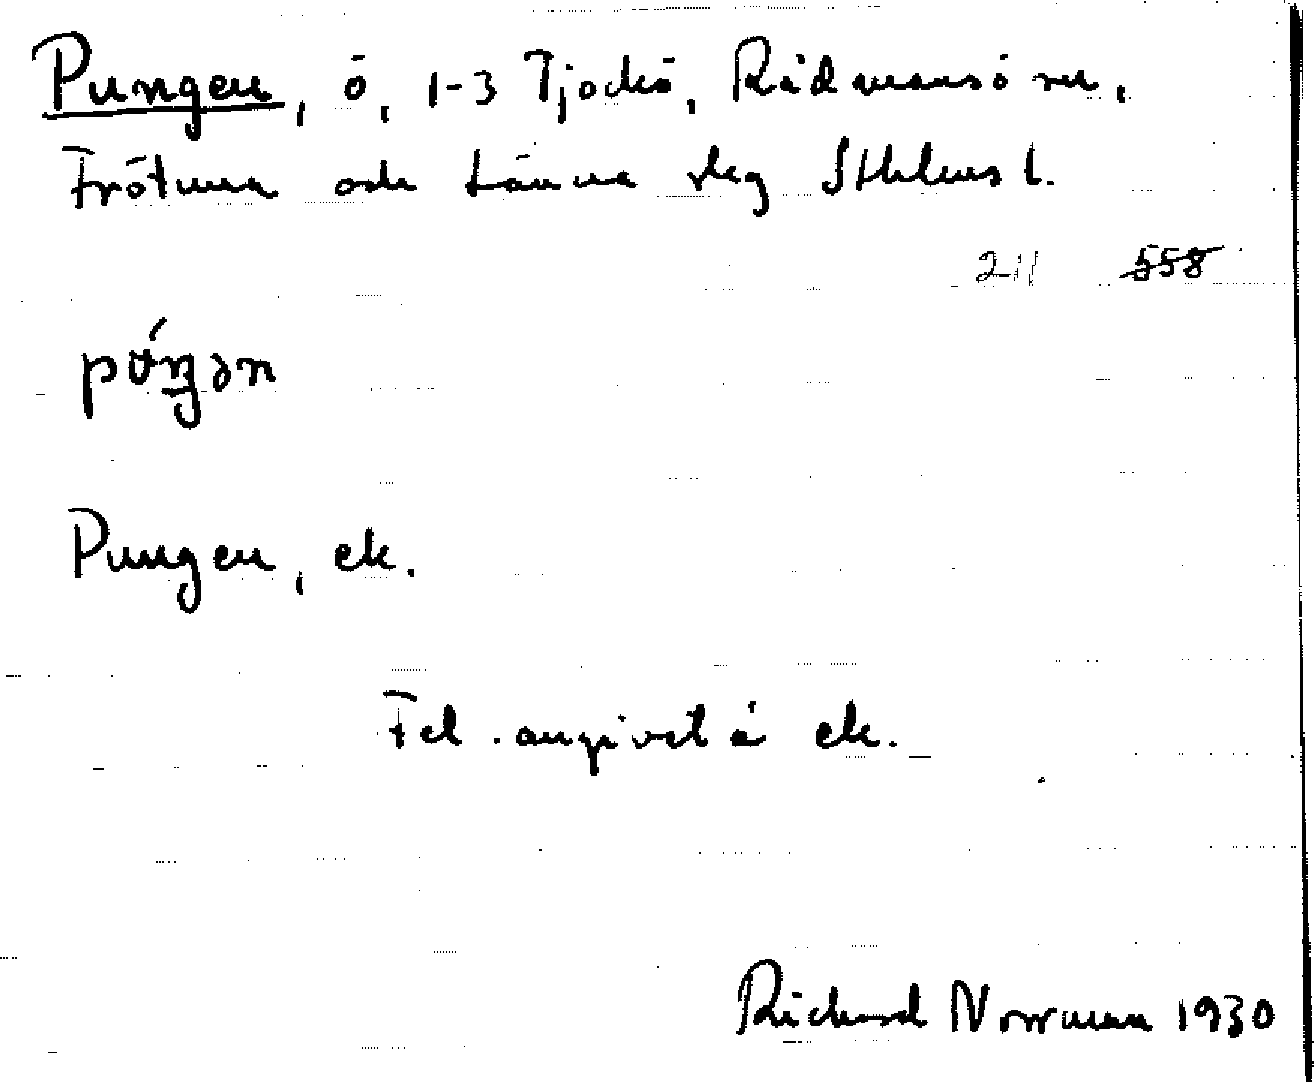 Pungen, ö, 1-3 Tjockö, Rådmansö sn,
Frötuna och Länna skg Sthlms l.
558
pʊ́ŋən
Pungen, ek.
Fel angivet å ek.
Richard Norrman 1930